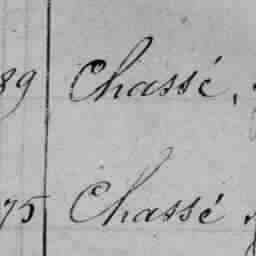 89 Chassé,
75 Chassé